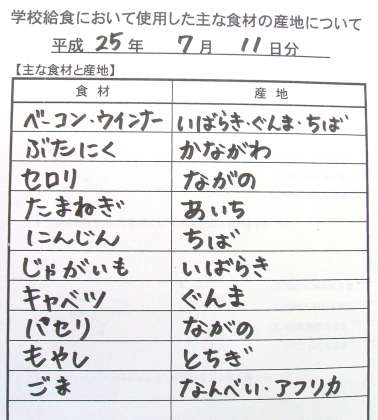 学校給食において使用した主な食材の産地について
平成 25 年 7 月 11 日分
【主な食材と産地】
食材 産地
ベーコン・ウインナー いばらき・ぐんま・ちば
ぶたにく かながわ
セロリ ながの
たまねぎ あいち
にんじん ちば
じゃがいも いばらき
キャベツ ぐんま
パセリ ながの
もやし とちぎ
ごま なんべい・アフリカ